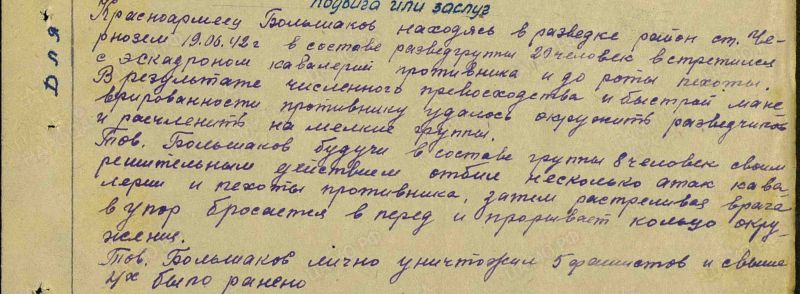 подвига или заслуг
Для
Красноармеец Большаков находясь в разведке район ст. Че-
рнозем 19.06.42г в составе разведгруппы 29 человек встретился
с эскадроном кавалерий противника и до роты пехоты.
В результате численного превосходства и быстрой мане
врированности противнику удалось окружить разведчиков
и расчленить на мелкие группы.
Тов. Большаков будучи в составе группы 8 человек своим
решительным действием отбил несколько атак кава
лерии и пехоты противника, затем растреливая врага
в упор бросается в перед и прорывает кольцо окру-
жения.
Тов. Большаков лично уничтожил 5 фашистов и свыше
было ранено